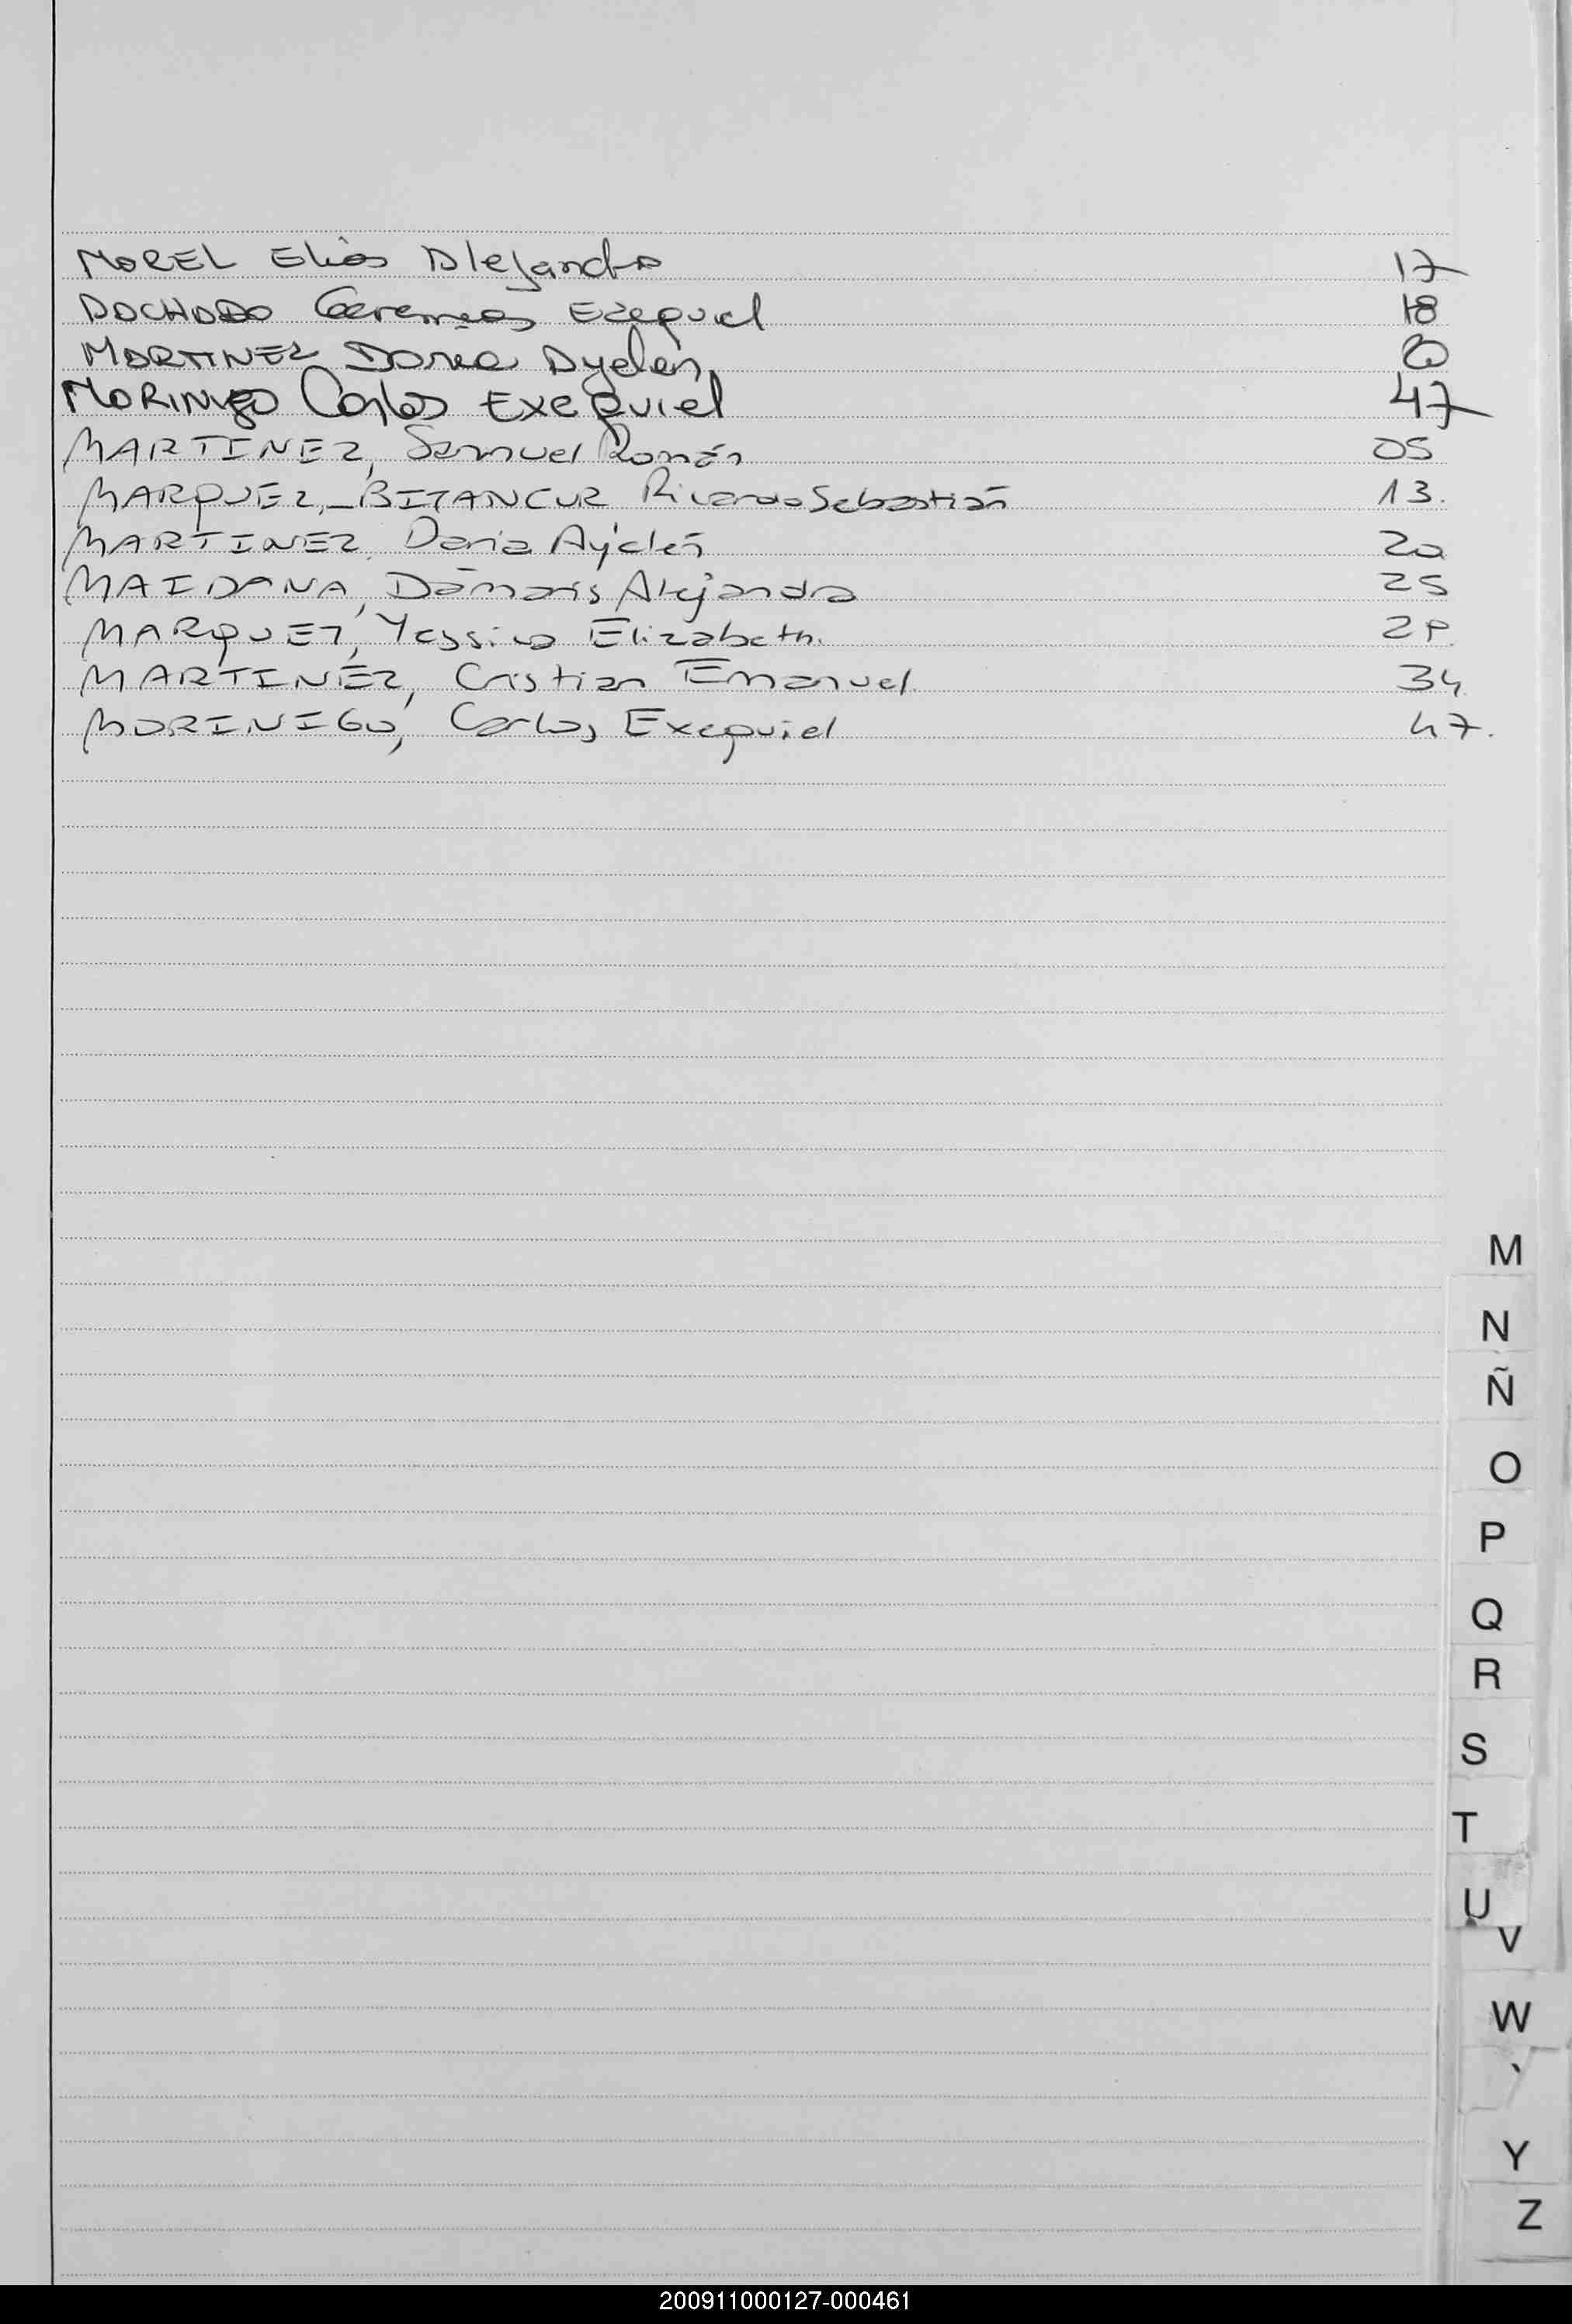 MOREL Elias Alejandro 17
MACHADO Geremias Ezequiel 18
MARTINEZ Dania Ayelen 20
MORINIGO Carlos Exequiel 47
MARTINEZ, Samuel Román 05
MARQUEZ, BITANCUR Ricardo Sebastián 13.
MARTINEZ, Dania Ayelén 20
MAIDANA, Dámaris Alejandra 25
MARQUEZ, Yessica Elizabeth. 29.
MARTINEZ, Cristian Emanuel. 34
MORINIGO, Carlos Exequiel 47.
M
N
Ñ
O
P
Q
R
S
T
U
V
W
Y
Z
200911000127-000461